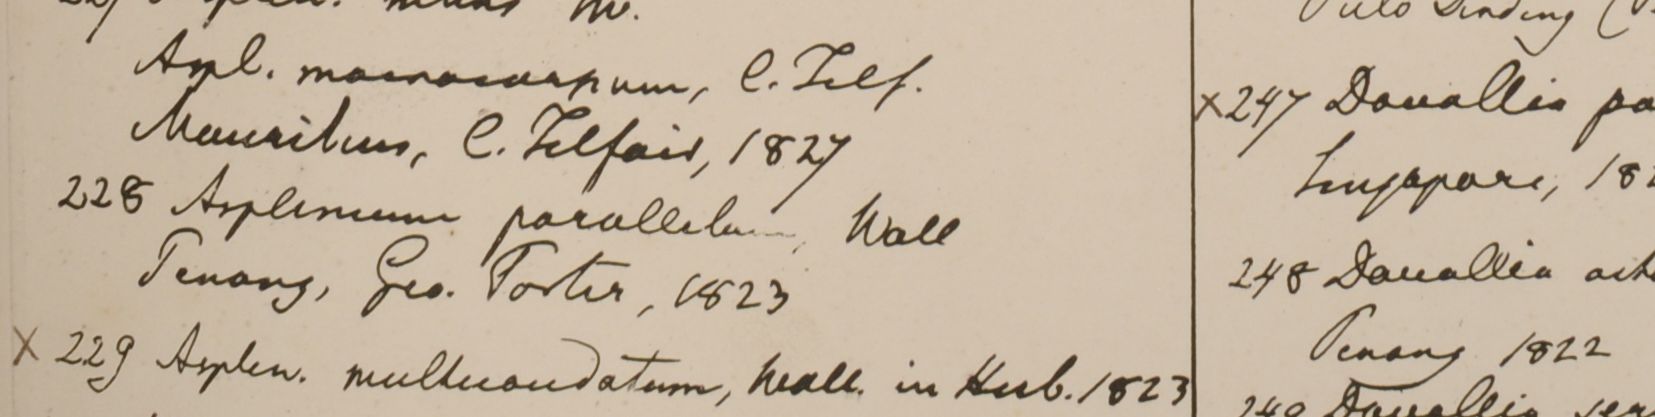 227 Asplen. nidus Lin.
Aspl. macrocarpum, C. Telf.
Mauritius, C. Telfair, 1827
228 Asplenium parallelum, Wall
Penang, Geo. Porter, 1823
X 229 Asplen. multicaudatum, Wall. in Herb. 1823
Pulo Dinding (
X 247 Davallia pa
Singapore, 182
248 Davallia
Penang 1822
249 Davallia